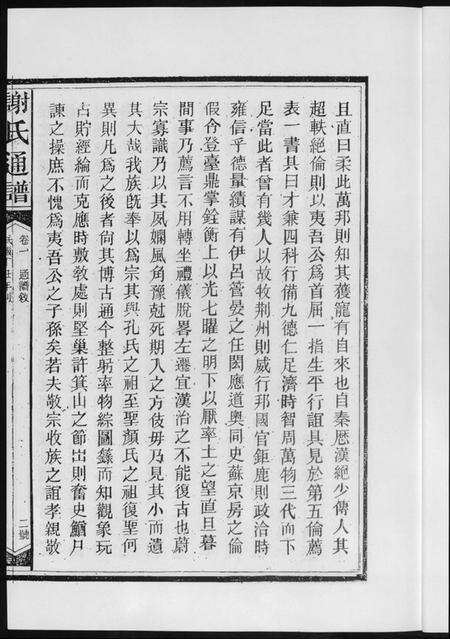 且直曰柔此萬邦則知其獲寵有自來也自秦厯漢絕少傳人其
超軼絕倫則以夷吾公爲首屈一指生平行誼具見於第五倫薦
表一書其曰才兼四科行備九德仁足濟時智周萬物三代而下
足當此者曾有幾人以故牧荆州則威行邦國官鉅鹿則政洽時
雍信乎德量績謀有伊呂管晏之任閎應道奧同史蘇京房之倫
假令登臺鼎掌銓衡上以光七曜之明下以厭率土之望直旦暮
間事乃薦言不用轉坐禮儀脫畧左遷宜漢治之不能復古也蔚
宗寡識乃以其夙嫺風角豫尅死期入之方伎毋乃見其小而遺
其大哉我族旣奉以爲宗其與孔氏之祖至聖顏氏之祖復聖何
異則凡爲之後者尙其博古通今整躬率物綜圖蓀而知觀象玩
占貯經綸而克應時敷敎處則堅巢許箕山之節出則奮史鰌尸
諫之操庶不愧爲夷吾公之子孫矣若夫敬宗收族之誼孝親敬
謝氏通譜
卷一
通譜敘
二號